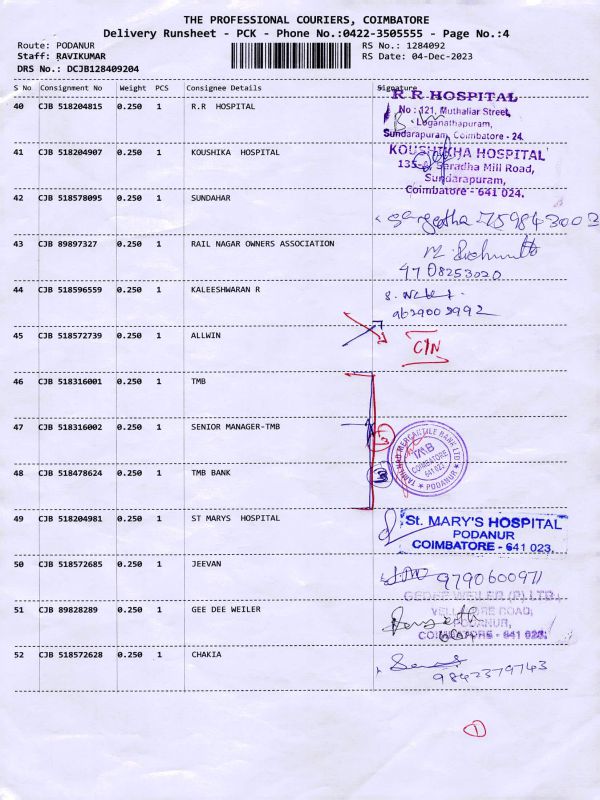 THE PROFESSIONAL COURIERS, COIMBATORE
Delivery Runsheet - PCK - Phone No.:0422-3505555 - Page No.:4
Route: PODANUR
Staff: RAVIKUMAR
DRS No.: DCJB128409204
RS No.: 1284092
RS Date: 04-Dec-2023
S No Consignment No Weight PCS Consignee Details Signature
40 CJB 518204815 0.250 1 R.R HOSPITAL
R R HOSPITAL
No : 121, Muthaliar Street,
Loganathapuram,
Sundarapuram, Coimbatore - 24.
41 CJB 518204907 0.250 1 KOUSHIKA HOSPITAL
KOUSHIKHA HOSPITAL
Saradha Mill Road,
Sundarapuram,
Coimbatore - 641 024.
42 CJB 518578095 0.250 1 SUNDAHAR
Sangeetha
43 CJB 89897327 0.250 1 RAIL NAGAR OWNERS ASSOCIATION
9708253020
44 CJB 518596559 0.250 1 KALEESHWARAN R
9629002992
45 CJB 518572739 0.250 1 ALLWIN
C/N
46 CJB 518316001 0.250 1 TMB
47 CJB 518316002 0.250 1 SENIOR MANAGER-TMB
48 CJB 518478624 0.250 1 TMB BANK
3
TAMILNAD MERCANTILE BANK LTD
TMB
COIMBATORE
641 023
PODANUR
49 CJB 518204981 0.250 1 ST MARYS HOSPITAL
St. MARY'S HOSPITAL
PODANUR
COIMBATORE - 641 023.
50 CJB 518572685 0.250 1 JEEVAN
9790600971
51 CJB 89828289 0.250 1 GEE DEE WEILER
GEDEE WEILER (P) LTD.,
VELLALORE ROAD,
PODANUR,
COIMBATORE - 641 023.
52 CJB 518572628 0.250 1 CHAKIA
9842379743
1